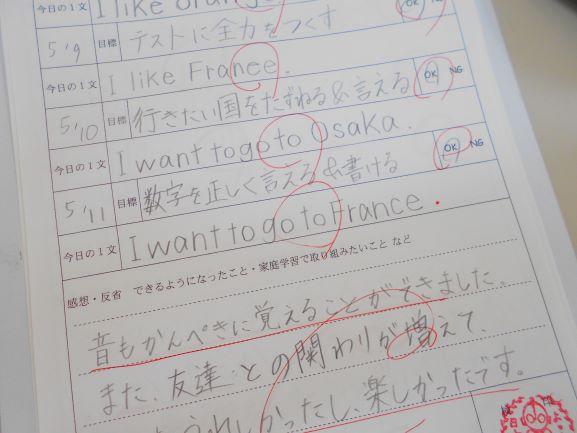 今日の1文 I like orang
5/9 目標 テストに全力をつくす OK
今日の1文 I like Franee.
5/10 目標 行きたい国をたずねる&言える OK NG
今日の1文 I want to go to Osaka.
5/11 目標 数字を正しく言える&書ける OK NG
今日の1文 I want to go to France.
感想・反省 できるようになったこと・家庭学習で取り組みたいこと など
音もかんぺきに覚えることができました。
また、友達との関わりが増えて、
うれしかったし、楽しかったです。